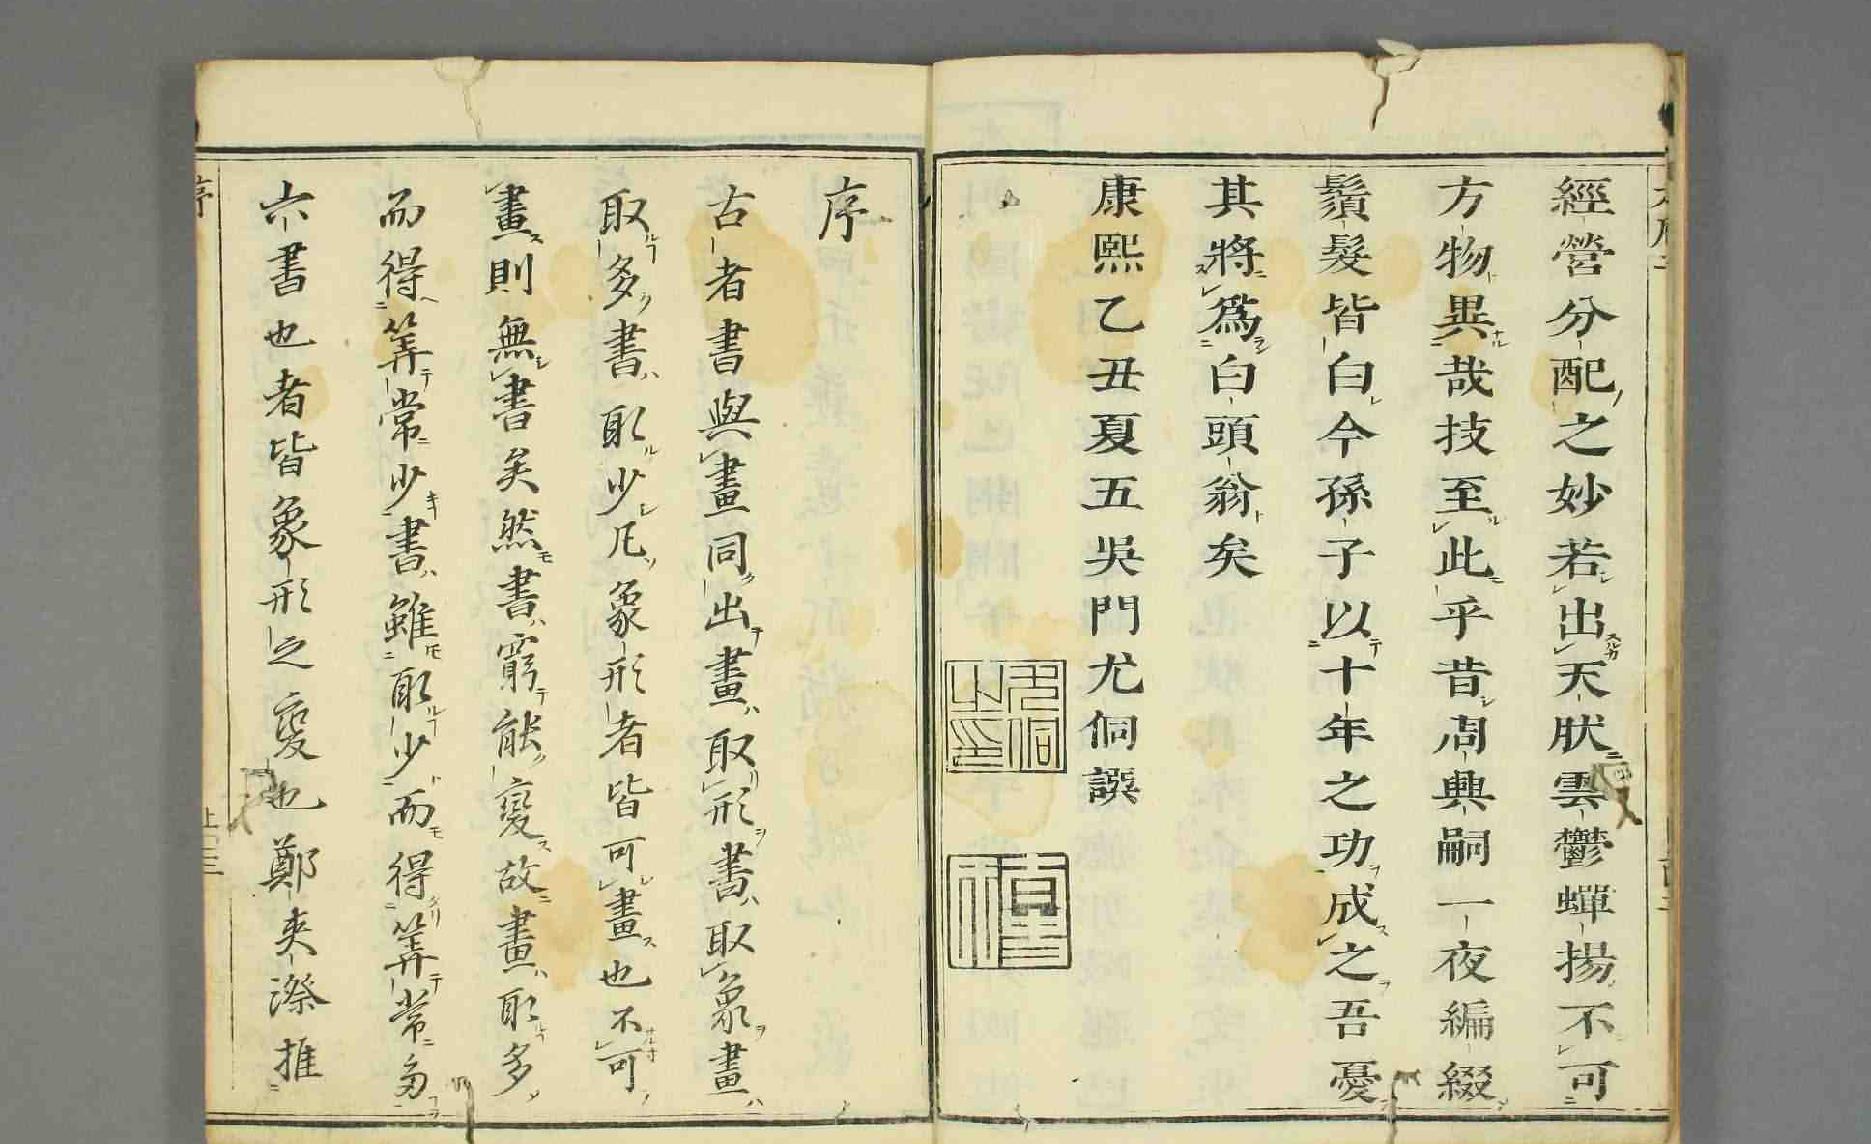 經營分配之妙若出天狀雲鬱蟬揚不可
方物異哉技至此乎昔周興嗣一夜編綴
鬚髮皆白今孫子以十年之功成之吾憂
其將爲白頭翁矣
康熙乙丑夏五吳門尤侗譔
尤侗之印
序
古者書與畫同出畫取形書取象畫
取多書取少凡象形者皆可畫也不可
畫則無書矣然書窮能變故畫雖取多
而得筭常少書雖取少而得筭常多
六書也者皆象形之變也鄭夾漈推
序